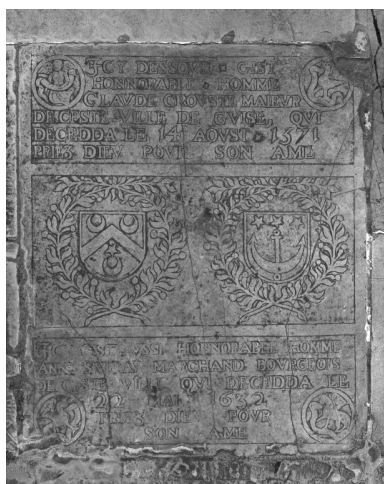 ICY DESSOVBS GIST
HONNORABLE HOMME
CLAVDE CROVSTE MAIEVR
DE CESTE VILLE DE GVISE, QVI
DECEDDA LE 14 AOVST 1571
PRIES DIEV POVR SON AME
GIST AVSSI HONNORABLE HOMME
MARCHAND BOVRGEOIS
DE CESTE VILLE QVI DECEDDA LE
22 MAI 1632
PRIES DIEV POVR
SON AME